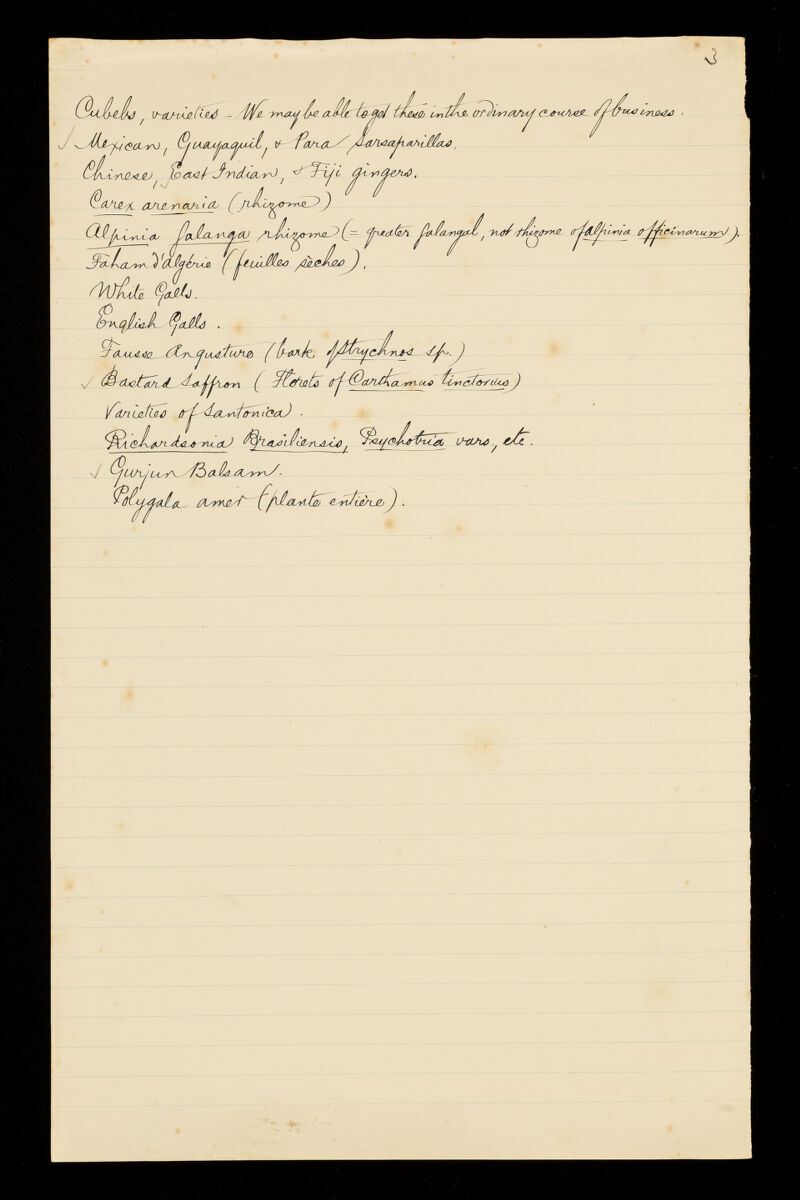 3
Cubebs, varieties - We may be able to get these in the ordinary course of business.
✓ Mexican, Guayaquil, & Para Sarsaparillas.
Chinese, East Indian, & Fiji gingers.
Carex arenaria (rhizome)
Alpinia Galanga rhizome (= greater Galangal, not rhizome of Alpinia officinarum).
Faham d'algérie (feuilles sèches).
White Galls.
English Galls.
Fausse Angusture (bark of Strychnos sp.)
✓ Bastard Saffron (Florets of Carthamus tinctorius)
Varieties of Santonica.
Richardsonia Brasiliensis, Psychotria vars, etc.
✓ Gurjun Balsam.
Polygala amer (plante entière).